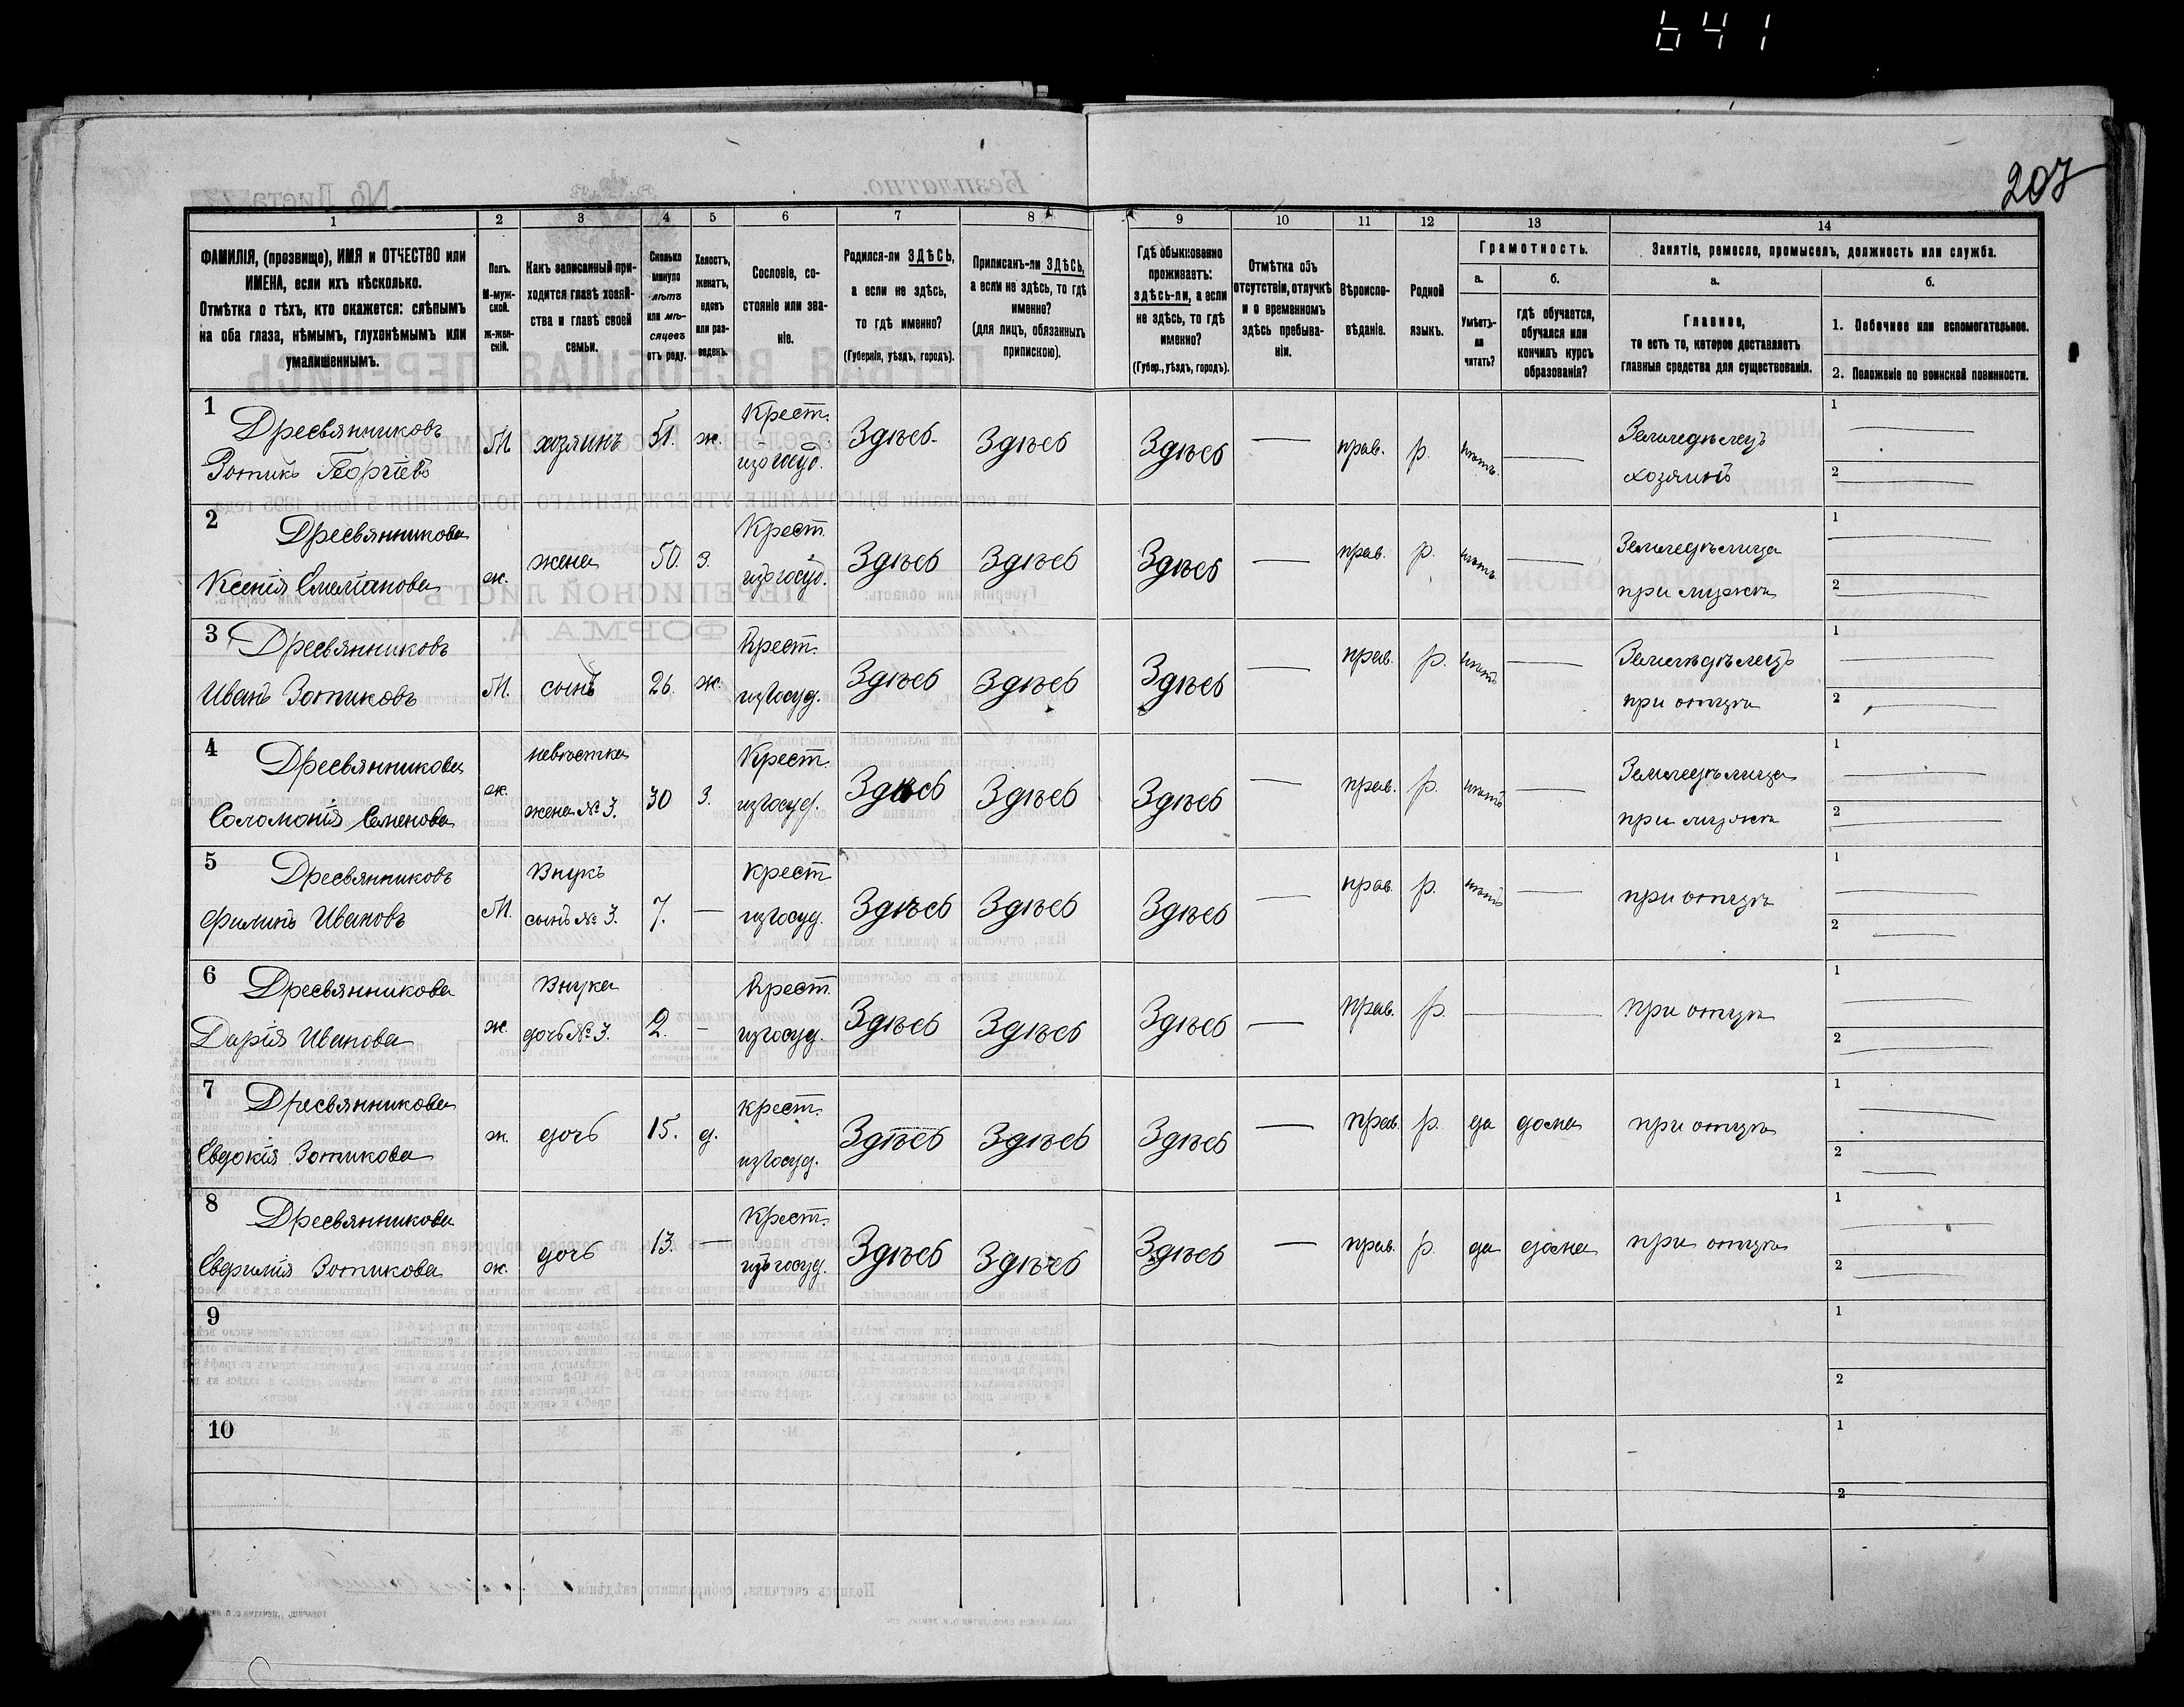 641
207
1 2 3 4 5 6 7 8 9 10 11 12 13 14
ФАМИЛІЯ, (прозвище), ИМЯ и ОТЧЕСТВО или
ИМЕНА, если ихъ нѣсколько.
Отмѣтка о тѣхъ, кто окажется: слѣпымъ
на оба глаза, нѣмымъ, глухонѣмымъ или
умалишеннымъ.
Полъ.
М-муж-
ской.
ж-жен-
скій.
Какъ записанный при-
ходится главѣ хозяй-
ства и главѣ своей
семьи.
Сколько
минуло
лѣтъ
или мѣ-
сяцевъ
отъ роду.
Холостъ,
женатъ,
вдовъ
или раз-
веденъ.
Сословіе, со-
стояніе или зва-
ніе.
Родился-ли ЗДѢСЬ,
а если не здѣсь,
то гдѣ именно?
(Губернія, уѣздъ, городъ).
Приписанъ-ли ЗДѢСЬ,
а если не здѣсь, то гдѣ
именно?
(для лицъ, обязанныхъ
припискою).
Гдѣ обыкновенно
проживаетъ:
здѣсь-ли, а если
не здѣсь, то гдѣ
именно?
(Губер., уѣздъ, городъ).
Отмѣтка объ
отсутствіи, отлучкѣ
и о временномъ
здѣсь пребыва-
ніи.
Вѣроиспо-
вѣданіе.
Родной
языкъ.
Грамотность.
а.
Умѣетъ-
ли
читать?
б.
гдѣ обучается,
обучался или
кончилъ курсъ
образованія?
Занятіе, ремесло, промыселъ, должность или служба.
а.
Главное,
то есть то, которое доставляетъ
главныя средства для существованія.
б.
1. Побочное или вспомогательное.
2. Положеніе по воинской повинности.
1 Дресвянниковъ
Зотикъ Георгіевъ
М. хозяинъ 51. ж.
Крест.
изъ госуд.
Здѣсь Здѣсь Здѣсь — прав. р. нѣтъ. —
Земледѣлецъ
хозяинъ
1 —
2 —
2 Дресвянникова
Ксенія Емеліанова
ж. жена 50. з.
Крест.
изъ госуд.
Здѣсь Здѣсь Здѣсь — прав. р. нѣтъ. —
Земледѣлица
при мужѣ
1 —
2 —
3 Дресвянниковъ
Иванъ Зотиковъ
М. сынъ 26. ж.
Крест.
из госуд.
Здѣсь Здѣсь Здѣсь — прав. р. нѣтъ —
Земледѣлецъ
при отцѣ
1 —
2 —
4 Дресвянникова
Соломонія Семенова
ж.
невѣстка
жена № 3.
30 з.
Крест.
из госуд.
Здѣсь Здѣсь Здѣсь — прав. р. нѣтъ —
Земледѣлица
при мужѣ
1 —
2 —
5 Дресвянниковъ
Филипъ Ивановъ
М.
Внукъ
сынъ № 3.
7. —
крест
из госуд.
Здѣсь Здѣсь Здѣсь — прав. р. нѣтъ —
при отцѣ
1 —
2 —
6 Дресвянникова
Дарія Иванова
ж.
Внука
дочь № 3.
2. —
Крест.
из госуд.
Здѣсь Здѣсь Здѣсь — прав. р. —
при отцѣ
1 —
2 —
7 Дресвянникова
Евдокія Зотикова
ж. дочь 15. д.
крест.
из госуд.
Здѣсь Здѣсь Здѣсь — прав. р. да дома
при отцѣ
1 —
2 —
8 Дресвянникова
Евфимія Зотикова
ж. дочь 13. —
Крест.
изъ госуд.
Здѣсь Здѣсь Здѣсь — прав. р. да дома
при отцѣ
1 —
2 —
9
1
2
10
1
2